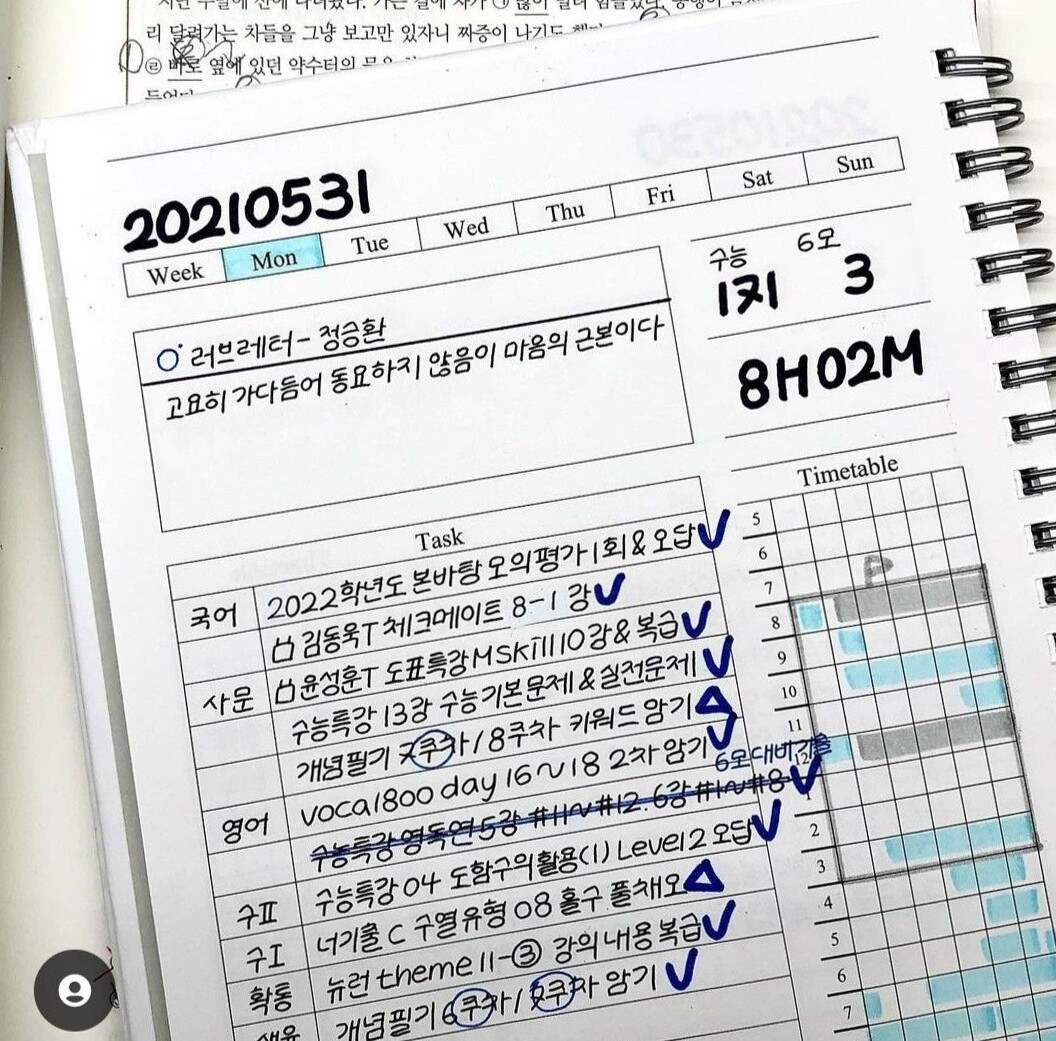 리 달려가는 차들을 그냥 보고만 있자니 짜증이 나기도
㉣ 바로 옆에 있던 약수터의
20210531
Week Mon Tue Wed Thu Fri Sat Sun
수능 6모
1지 3
러브레터 - 정승환
고요히 가다듬어 동요하지 않음이 마음의 근본이다
8H02M
Timetable
Task
국어 2022학년도 본바탕 모의평가 1회 & 오답
김동욱T 체크메이트 8-1강
사문 윤성훈T 도표특강 MSkill 10강 & 복습
수능특강 13강 수능기본문제 & 실전문제
개념필기 7주차 / 8주차 키워드 암기
영어 voca1800 day 16~18 2차 암기
6모 대비 기출
수능특강 영독연 5강 #11~#12. 6강 #1~#8
수Ⅱ 수능특강 04 도함수의 활용(1) Level 2 오답
수Ⅰ 너기출 C 수열 유형 08 홀구 풀채오
확통 뉴런 theme 11-③ 강의 내용 복습
개념필기 6주차 / 주차 암기
5
6
7
8
9
10
11
12
1
2
3
4
5
6
7